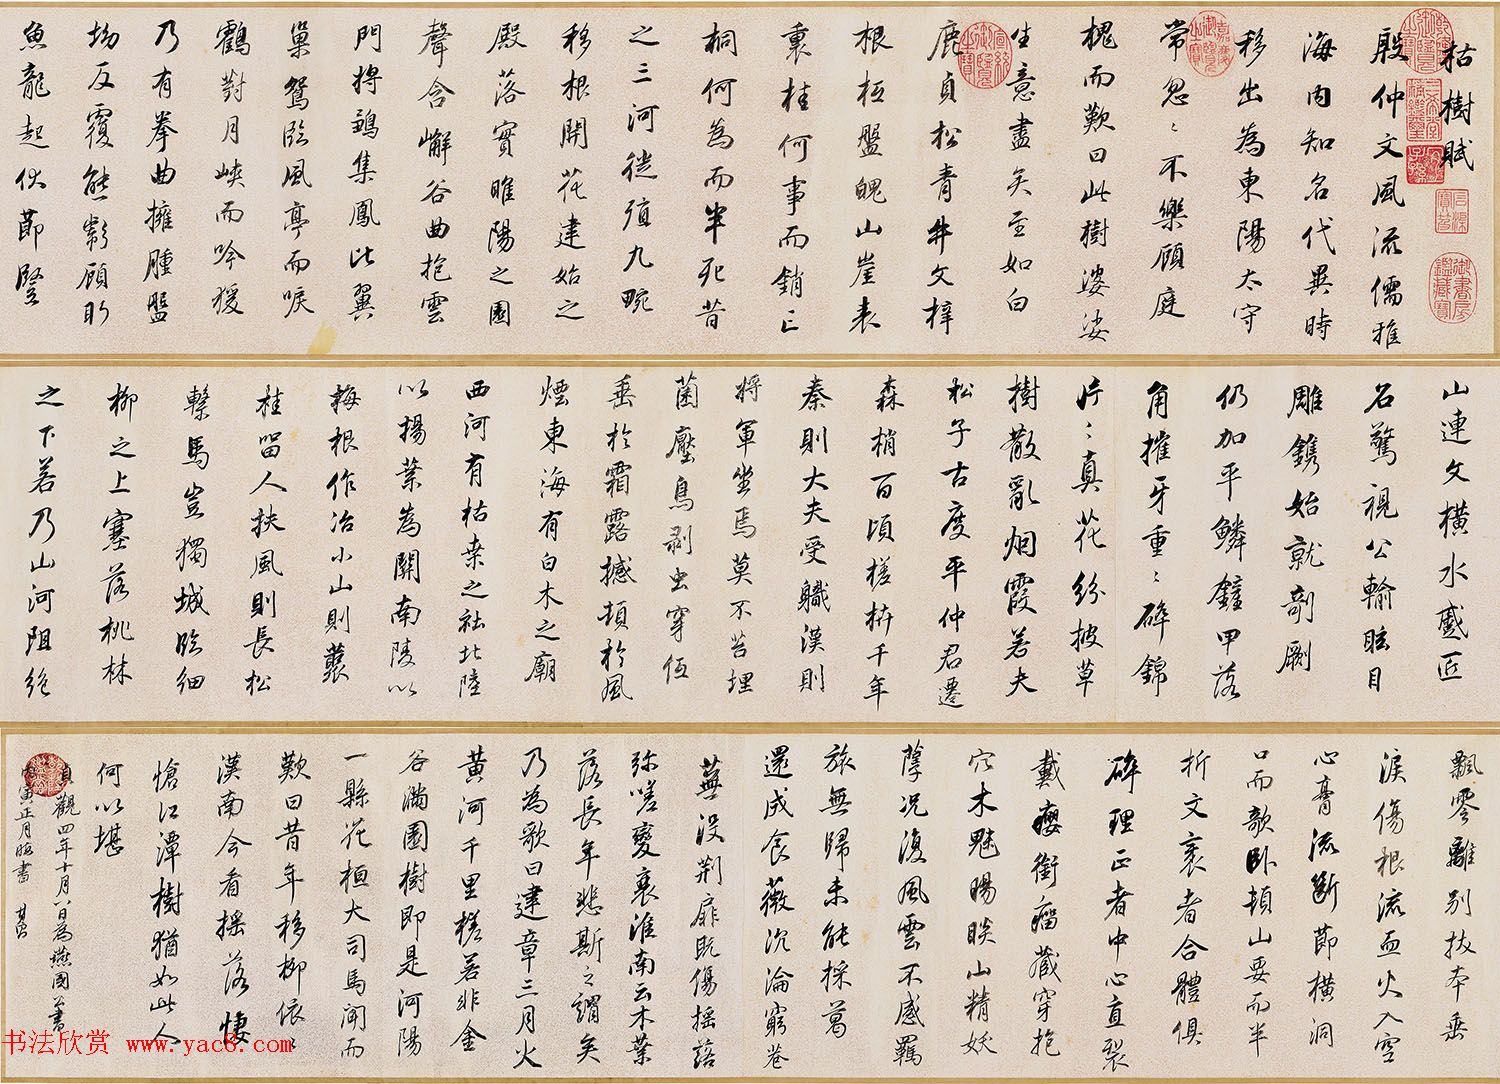 枯樹賦
殷仲文風流儒雅
海內知名代異時
移出為東陽太守
常忽〻不樂顧庭
槐而歎曰此樹婆娑
生意盡矣至如白
鹿貞松青牛文梓
根柢盤魄山崖表
裏桂何事而銷亡
桐何為而半死昔
之三河徙殖九畹
移根開花建始之
殿落實睢陽之園
聲含嶰谷曲抱雲
門將鶵集鳳比翼
巢鴛臨風亭而唳
鶴對月峽而吟猨
乃有拳曲擁腫盤
坳反覆熊彪顧盼
魚龍起伏節豎
山連文橫水蹙匠
石驚視公輸眩目
雕鐫始就剞劂
仍加平鱗鏟甲落
角摧牙重〻碎錦
片〻真花紛披草
樹散亂烟霞若夫
松子古度平仲君遷
森梢百頃槎枿千年
秦則大夫受職漢則
將軍坐焉莫不苔埋
菌壓鳥剥虫穿低
垂於霜露撼頓於風
煙東海有白木之廟
西河有枯桒之社北陸
以揚葉為關南陵以
梅根作冶小山則叢
桂留人扶風則長松
繫馬豈獨城臨細
柳之上塞落桃林
之下若乃山河阻絶
飄零離別拔本垂
淚傷根流血火入空
心膏流斷節橫洞
口而欹臥頓山要而半
折文衺者合體俱
碎理正者中心直裂
戴癭銜瘤藏穿抱
穴木魅睗睒山精妖
孽況復風雲不感羈
旅無歸未能採葛
還成食薇沉淪窮巷
蕪没荆扉既傷搖落
弥嗟變衰淮南云木葉
落長年悲斯之謂矣
乃為歌曰建章三月火
黃河千里槎若非金
谷滿園樹即是河陽
一縣花桓大司馬聞而
歎曰昔年移柳依〻
漢南今看搖落悽
愴江潭樹猶如此人
何以堪
貞觀四年十月八日為燕國公書
寅正月臨書
书法欣赏 www.yac8.com